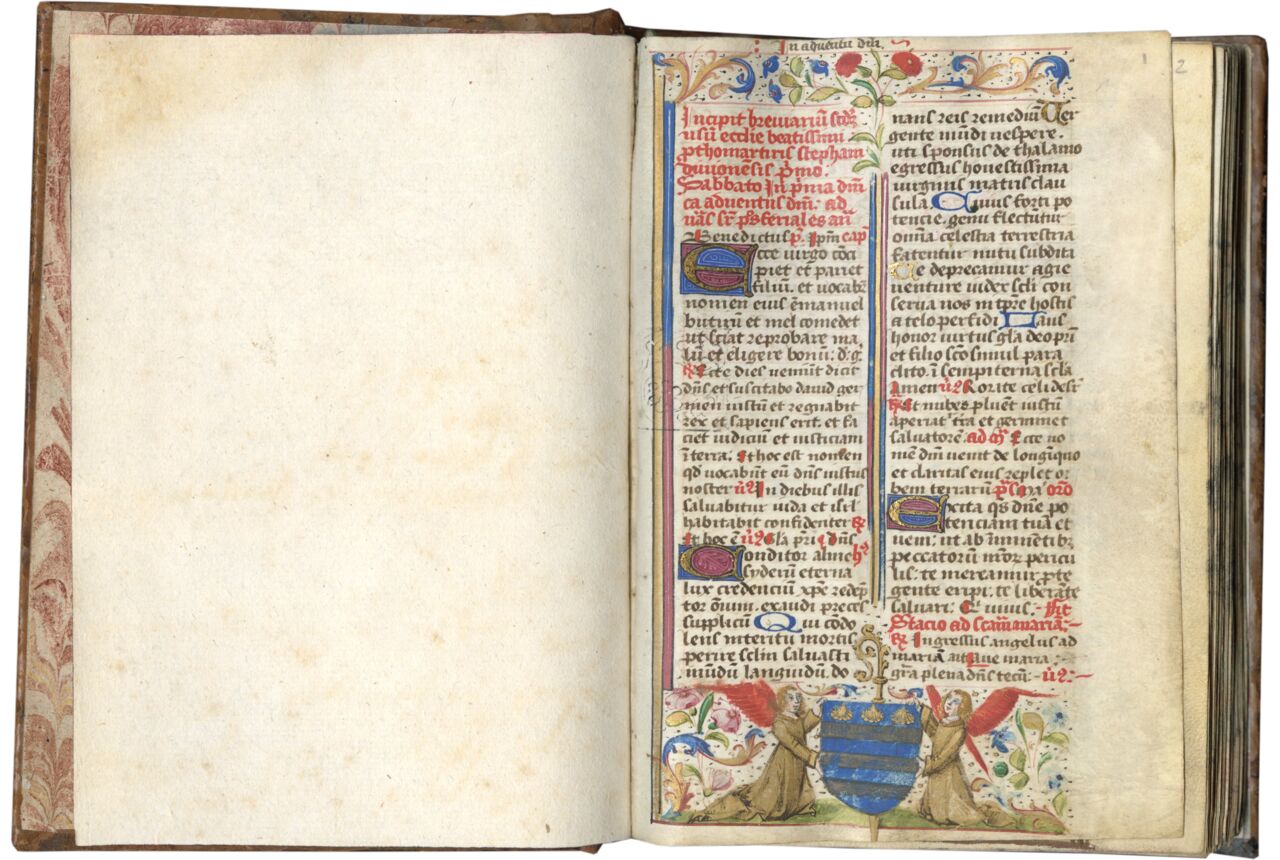 In adventu dñi
1
2
Incipit breviariũ scdʒ
usũ ecclie beatissimi
ꝓthomartiris stephani
divionensis p̃mo
Sabbato In p̃ma dñi
ca adventus dñi. ad
vãs sr̃ p̃s feriales añ
Benedictus p̃. ip̃m cap̃
Ecce virgo cõci
piet et pariet
filiũ. et vocabr̃
nomen eius ẽmanuel
butirũ et mel comedet
ut sciat reprobare ma
lũ et eligere bonũ. d. g.
Ecce dies veniũt dicit
dñs et suscitabo david ger
men iustũ et regnabit
rex et sapiens erit. et fa
ciet iudiciũ et iusticiam
ĩ terra. Et hoc est nomen
qd vocabũt eũ dñs iustus
noster In diebus illis
salvabitur iuda et isrl̃
habitabit confidenter
Et hoc ẽ Gl̃a pr̃i dñs
Conditor alme
syderũ eterna
lux credenciũ xp̃e redẽp
tor õniũ. exaudi preces
supplicũ Qui cõdo
lens interitu mortis
perire sclm̃ salvasti
mũdũ languidũ. do
nans reis remediũ Ver
gente mũdi vespere.
uti sponsus de thalamo
egressus honestissima
virginis matris clau
sula. Cuius forti po
tencie. genu flectũtur
omĩa celestia terrestria
fatentur nutu subdita
Te deprecamur agie
venture iudex scli con
serva nos in tp̃re hostis
a telo perfidi Laus
honor virtus gl̃a deo pr̃i
et filio sc̃o simul para
clito. ĩ sempiterna scl̃a
Amen Rorate celi desr̃
Et nubes pluẽt iustũ
aperiat̃ tr̃a et germinet
salvatorẽ. ad Ecce no
mẽ dñi venit de longĩquo
et claritas eius replet or
bem terrarũ p̃s or̃o
Excita qs dñe po
tenciam tuã et
veni. ut ab ĩminẽtibʒ
peccatorũ nr̃orʒ pericu
lis. te mereamur ꝓte
gente eripi. te liberãte
salvari. Qui vivis. fit
Stacio ad scam mariã
Ingressus angelus ad
mariã ait ave maria
gr̃a plena dñs tecũ.